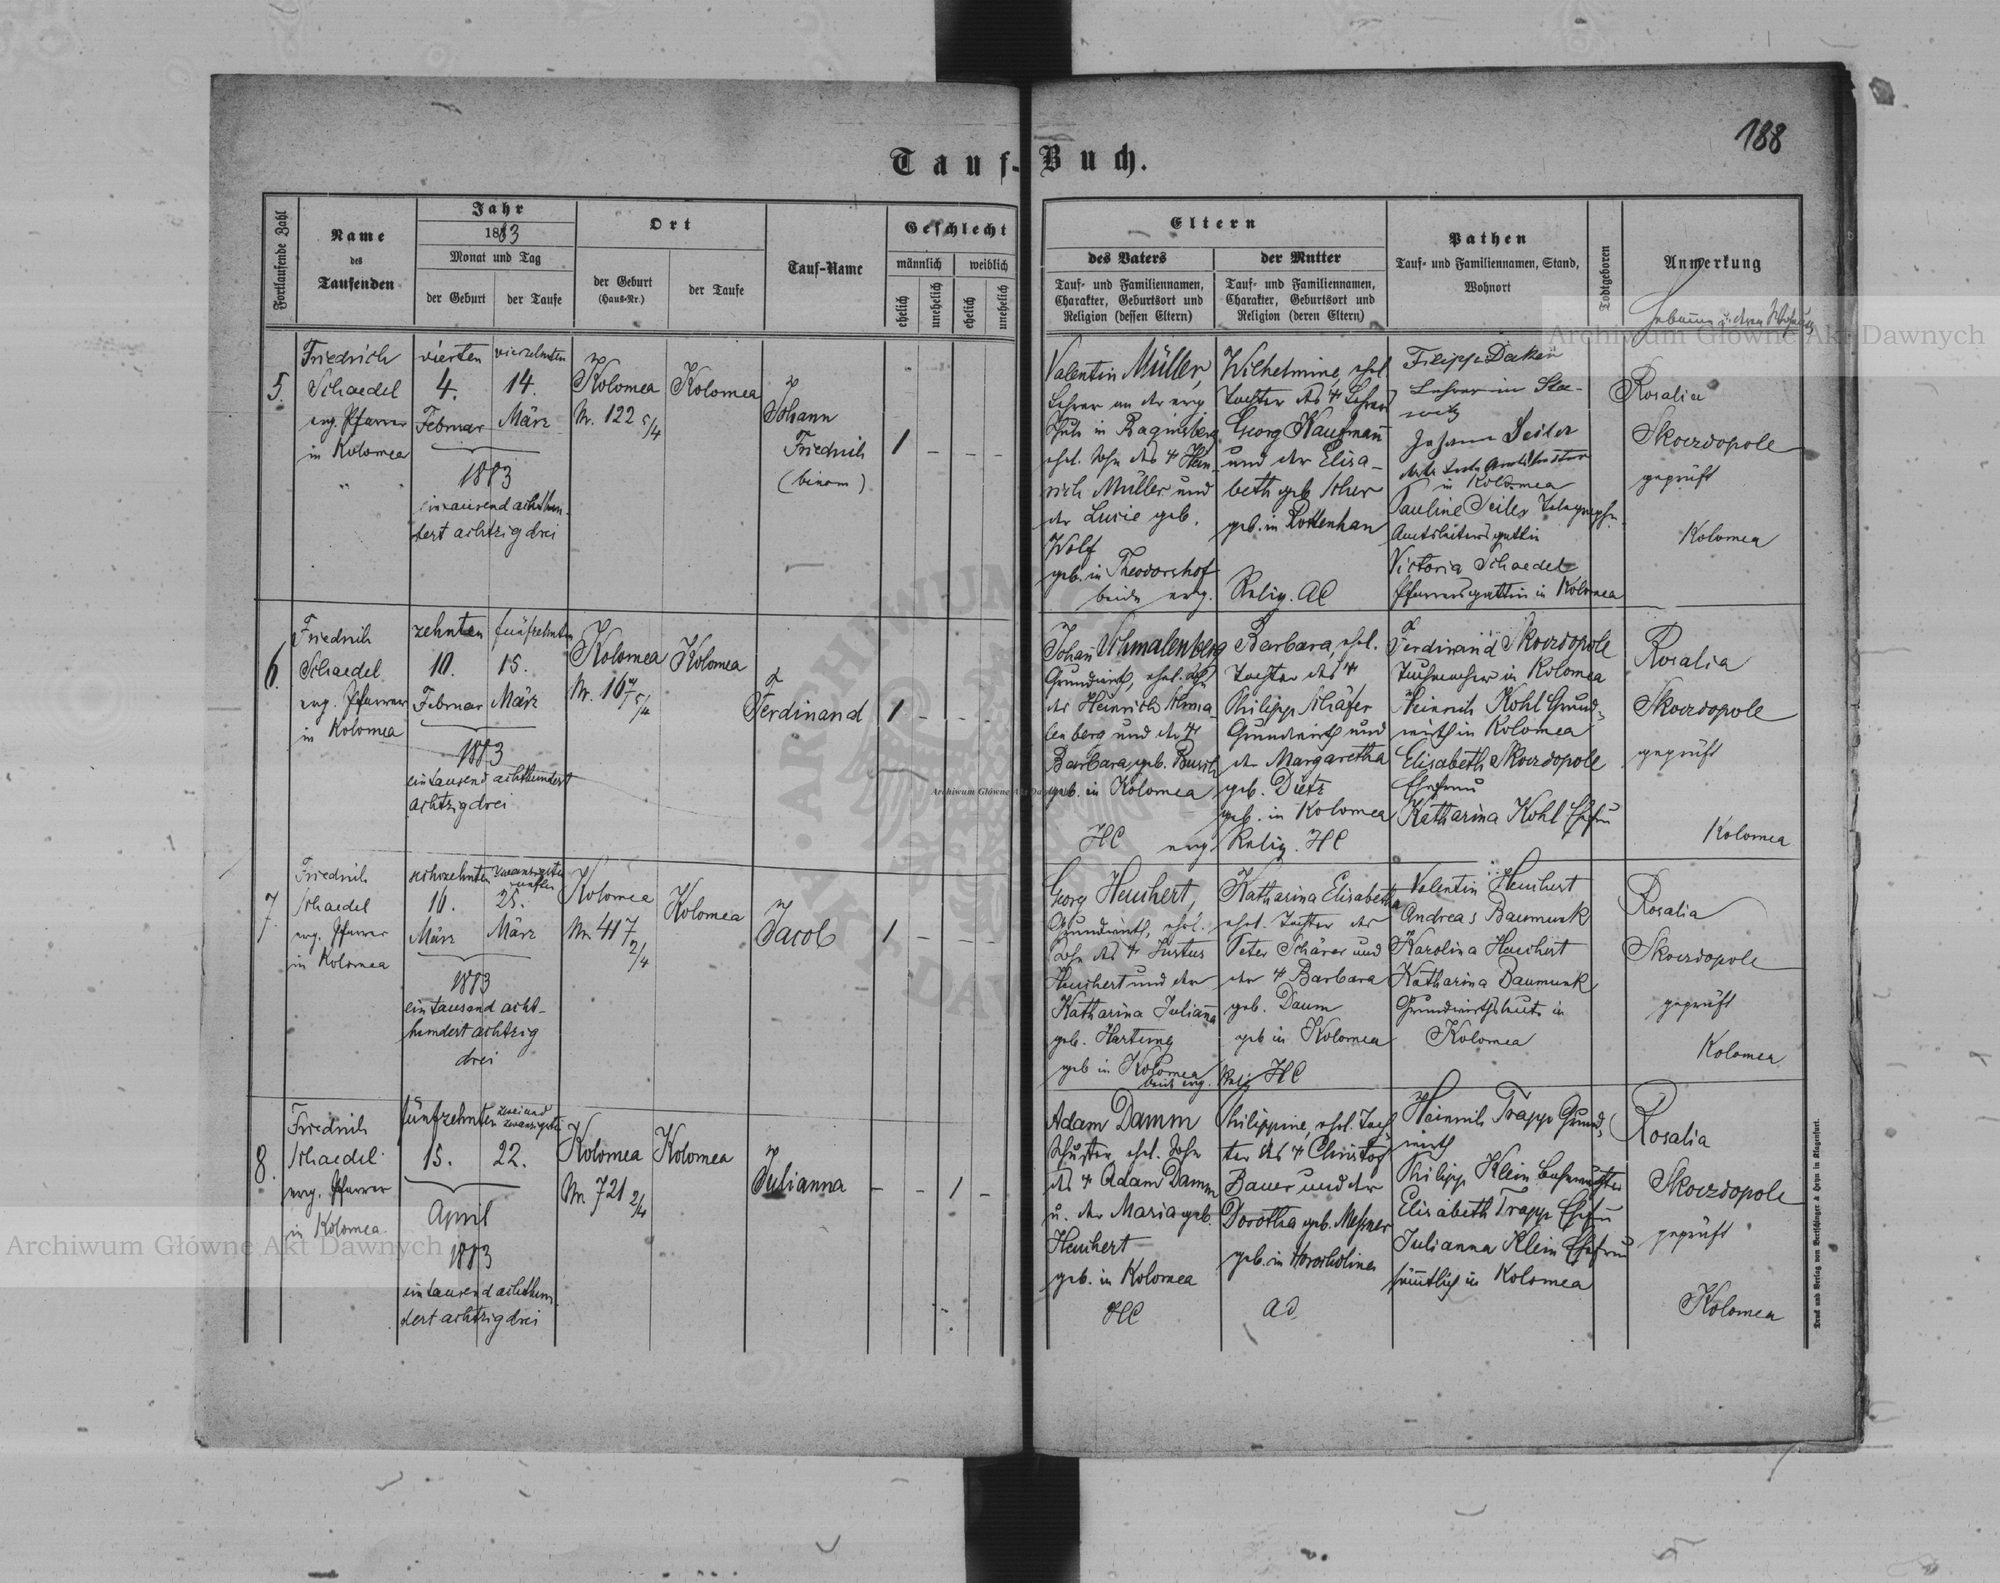 188
Tauf-Buch.
Fortlaufende Zahl
Name
des
Taufenden
Jahr
1883
Monat und Tag
der Geburt
der Taufe
Ort
der Geburt
(Haus-Nr.)
der Taufe
Tauf-Name
Geschlecht
männlich
weiblich
ehelich
unehelich
ehelich
unehelich
Eltern
des Vaters
Tauf- und Familiennamen,
Charakter, Geburtsort und
Religion (dessen Eltern)
der Mutter
Tauf- und Familiennamen,
Charakter, Geburtsort und
Religion (deren Eltern)
Pathen
Tauf- und Familiennamen, Stand,
Wohnort
Todtgeboren
Anmerkung
Archiwum Główne Akt Dawnych
5.
Friedrich
Schaedel
evg. Pfarrer
in Kolomea
vierten
4.
Februar
vierzehnten
14.
März
1883
eintausend achthun-
dert achtzig drei
Kolomea
Nr. 122 5/4
Kolomea
Johann
Friedrich
(binom)
1 - - -
Valentin Müller,
Lehrer an der evg
Schule in Baginsberg
ehel. Sohn des † Hein-
rich Müller und
der Lucie geb.
Wolf
geb. in Theodorshof
beide evg.
Wilhelmine, ehel
Tochter des † Lehrers
Georg Kaufmann
und der Elisa-
beth geb Scher
geb. in Rottenhan
Relig. AC
Filipp Decker
Lehrer in
Johann Seiler
in Kolomea
Pauline Seiler Telegraphen-
Amtsleitersgattin
Victoria Schaedel
Pfarrersgattin in Kolomea
Rosalia
Skoczdopole
geprüft
Kolomea
6.
Friedrich
Schaedel
evg. Pfarrer
in Kolomea
zehnten
10.
Februar
fünfzehnten
15.
März
1883
eintausend achthundert
achtzig drei
Kolomea
Nr. 167 5/4
Kolomea
Ferdinand
1 - - -
Johann Schmalenberg
Grundwirth, ehel. Sohn
des Heinrich Schma-
lenberg und der †
Barbara geb. Busch
geb. in Kolomea
HC evg
Barbara, ehel.
Tochter des †
Philipp Schäfer
Grundwirth und
der Margaretha
geb. Dietz
geb. in Kolomea
Relig. HC
Ferdinand Skoczdopole
Tuchmacher in Kolomea
Heinrich Kohl Grund-
wirth in Kolomea
Elisabeth Skoczdopole
Ehefrau
Katharina Kohl Ehefrau
Rosalia
Skoczdopole
geprüft
Kolomea
Archiwum Główne Akt Dawnych
7.
Friedrich
Schaedel
evg. Pfarrer
in Kolomea
sechszehnten
16.
März
25.
März
1883
eintausend acht-
hundert achtzig
drei
Kolomea
Nr. 417
2/4
Kolomea
Jacob
1 - - -
Georg Heuchert,
Grundwirth, ehel.
Sohn des † Justus
Heuchert und der
Katharina Julianna
geb. Hartung
geb in Kolomea
beide evg.
Katharina Elisabetha
ehel. Tochter des
Peter Schärer und
der † Barbara
geb. Daum
geb in Kolomea
Relig HC
Valentin Heuchert
Andreas Baumunk
Karolina Heuchert
Katharina Baumunk
Grundwirthsleute in
Kolomea
Rosalia
Skoczdopole
geprüft
Kolomea
8.
Friedrich
Schaedel
evg. Pfarrer
in Kolomea
fünfzehnten
15.
zweiund
zwanzigsten
22.
April
1883
eintausend achthun-
dert achtzig drei
Kolomea
Nr. 721 2/4
Kolomea
Julianna
- - 1 -
Adam Damm
Schuster, ehel. Sohn
des † Adam Damm
u. der Maria geb.
Heuchert
geb. in Kolomea
HC
Philippine, ehel. Toch
ter des † Christof
Bauer und der
Dorothea geb. Messner
geb. in Horocholina
AC
Heinrich Trapp Grund-
wirth
Philipp Klein
Elisabeth Trapp Ehefrau
Julianna Klein Ehefrau
sämmtlich in Kolomea
Rosalia
Skoczdopole
geprüft
Kolomea
Druck und Verlag von Bertschinger & Heyn in Klagenfurt.
Archiwum Główne Akt Dawnych